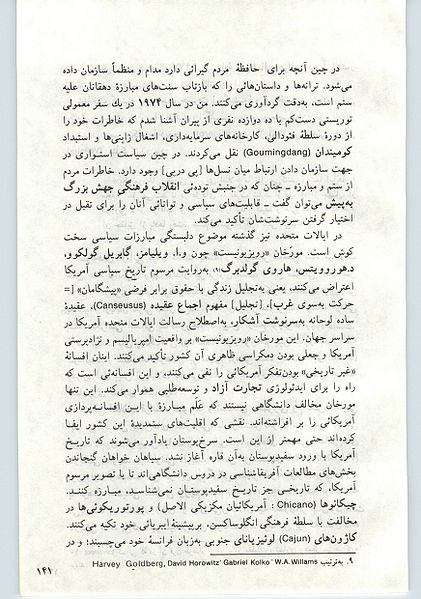 در چین آنچه برای حافظهٔ مردم گیرائی دارد مدام و منظماً سازمان داده
می‌شود. ترانه‌ها و داستان‌هائی را که بازتاب سنت‌های مبارزهٔ دهقانان علیه
ستم است، به‌دقت گردآوری می‌کنند. من در سال ۱۹۷۴ در یك سفر معمولی
توریستی دست‌کم با ده دوازده نفری از پیران آشنا شدم که خاطرات خود را
از دورهٔ سلطهٔ فئودالی، کارخانه‌های سرمایه‌داری، اشغال ژاپنی‌ها و استبداد
کومیندان (Goumingdang) نقل می‌کردند. در چین سیاست استواری در
جهت سازمان دادن ارتباط میان نسل‌ها [پی درپی] وجود دارد. خاطرات مردم
از ستم و مبارزه ــ چنان که در جنبش توده‌ئی انقلاب فرهنگی جهش بزرگ
به‌پیش می‌توان گفت ــ قابلیت‌های سیاسی و توانائی آنان را برای تقبل در
اختیار گرفتن سرنوشت‌شان تأکید می‌کند.
در ایالات متحده نیز گذشته موضوع دلبستگی مبارزات سیاسی سخت
کوش است. مورّخان «رویزیونیست» چون و.ا. ویلیامز، گابریل گولکو،
د.هوروویتس، هاروی گولدبرگ(۹) به‌روایت مرسوم تاریخ سیاسی آمریکا
اعتراض می‌کنند، یعنی به‌تجلیل زندگی با حقوق برابر فرضی «پیشگامان» [=
حرکت به‌سوی غرب]، [تجلیل] مفهوم اجماع عقیده (Canseusus)، عقیدهٔ
ساده لوحانه به‌سرنوشت آشکار، به‌اصطلاح رسالت ایالات متحده آمریکا در
سراسر جهان. این مورخان «رویزیونیست» بر واقعیت امپریالیسم و نژادپرستی
آمریکا و جعلی بودن دمکراسی ظاهری آن کشور تأکید می‌کنند. اینان افسانهٔ
«غیر تاریخی» بودن‌تفکر آمریکائی را نفی می‌کنند، و این افسانه‌ئی است که
راه را برای ایدئولوژی تجارت آزاد و توسعه‌طلبی هموار می‌کند. این تنها
مورخان مخالف دانشگاهی نیستند که عَلَم مبارزهٔ با ایـن افسانـه‌پردازی
آمریکائی را بر افراشته‌اند. نقشی که اقلیت‌های ستمدیدهٔ این کشور ایفـا
کرده‌اند حتی مهمتر از این است. سرخ‌پوستان یادآور می‌شوند که تاریـخ
آمریکا با ورود سفیدپوستان به‌آن قاره آغاز نشد. سیاهان خواهان گنجاندن
بخش‌های مطالعات آفریقاشناسی در دروس دانشگاهی‌اند تا با تصویر مرسوم
آمریکا، که تاریخـی جز تاریـخ سفیدپوستـان نمی‌شناسـد، مبارزه کننـد.
چیکانوها (Chicano : آمریکائیان مکزیکی الاصل) و پورتوریکوئی‌ها در
مخالفت با سلطهٔ فرهنگی انگلوساکسن، برپیشینهٔ ایبریائی خود تکیه می‌کنند.
کاژون‌های (Cajun) لوئیزیانای جنوبی به‌زبان فرانسهٔ خود می‌چسبند؛ و در
۹. به‌ترتیب Harvey Goldberg, David Horowitz' Gabriel Kolko' W.A.Willams
۱۴۱